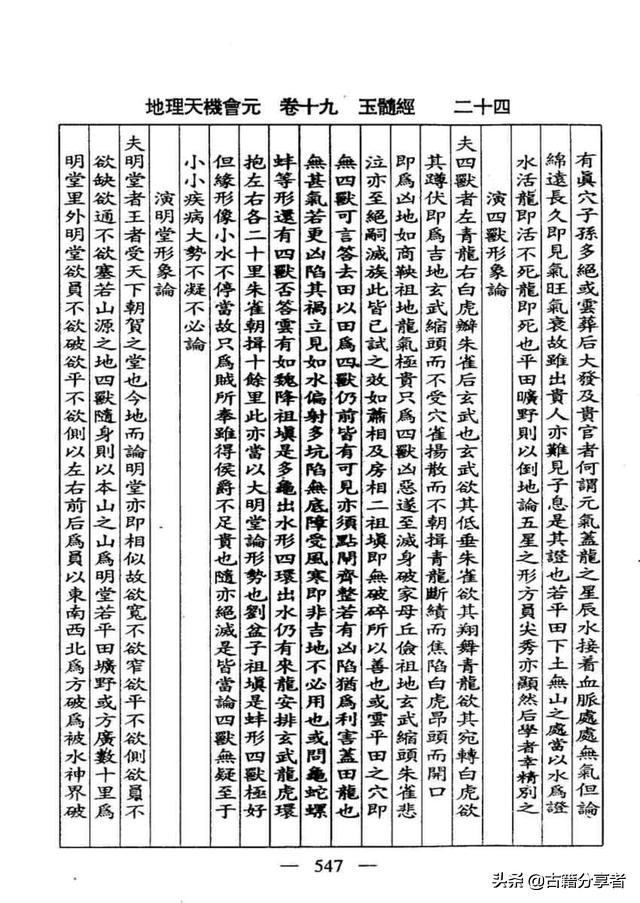 地理天機會元　卷十九　玉髓經　二十四
有眞穴子孫多絕或雲葬后大發及貴官者何謂元氣蓋龍之星辰水接着血脈處處無氣但論
綿遠長久即見氣旺氣衰故雖出貴人亦難見子息是其證也若平田下土無山之處當以水爲證
水活龍即活不死龍即死也平田曠野則以倒地論五星之形方員尖秀亦顯然后學者幸精別之
演四獸形象論
夫四獸者左青龍右白虎辦朱雀后玄武也玄武欲其低垂朱雀欲其翔舞青龍欲其宛轉白虎欲
其蹲伏即爲吉地玄武縮頭而不受穴雀揚散而不朝揖青龍斷績而焦陷白虎昂頭而開口
即爲凶地如商鞅祖地龍氣極貴只爲四獸凶惡遂至滅身破家母丘儉祖地玄武縮頭朱雀悲
泣亦至絕嗣滅族此皆已試之效如蕭相及房相二祖塡即無破碎所以善也或雲平田之穴即
無四獸可言答去田以田爲四獸仍前皆有可見亦須點閘齊整若有凶陷猶爲利害蓋田龍也
無甚氣若更凶陷其禍立見如水偏射多坑陷無底障受風寒即非吉地不必用也或問龜蛇螺
蚌等形還有四獸否答雲有如魏降祖塡是多龜出水形四環出水仍有來龍安排玄武龍虎環
抱左右各二十里朱雀朝揖十餘里此亦當以大明堂論形勢也劉盆子祖塡是蚌形四獸極好
但緣形像小水不停當故只爲賊所奉雖得侯爵不足貴也隨亦絕滅是皆當論四獸無疑至于
小小疾病大勢不凝不必論
演明堂形象論
夫明堂者王者受天下朝賀之堂也今地而論明堂亦即相似故欲寬不欲窄欲平不欲側欲員不
欲缺欲通不欲塞若山源之地四獸隨身則以本山之山爲明堂若平田壙野或方廣數十里爲
明堂里外明堂欲員不欲破欲平不欲側以左右前后爲員以東南西北爲方破爲被水神界破
— 547 —
头条 @古籍分享者